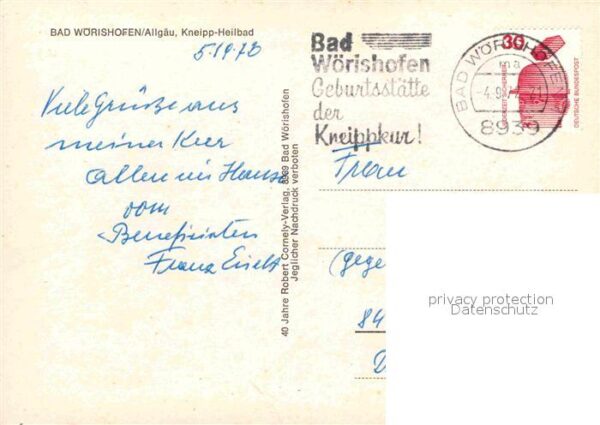 BAD WÖRISHOFEN/Allgäu, Kneipp-Heilbad
Viele Grüße aus
meiner Kur
allen im Hause
vom
Benefiziaten
Franz
40 Jahre Robert Cornely-Verlag, 8939 Bad Wörishofen
Jeglicher Nachdruck verboten
Bad
Wörishofen
Geburtsstätte
der
Kneippkur!
BAD WÖRISHOFEN
ma
8939
30
DEUTSCHE BUNDESPOST
Frau
(gege
84
D
privacy protection
Datenschutz